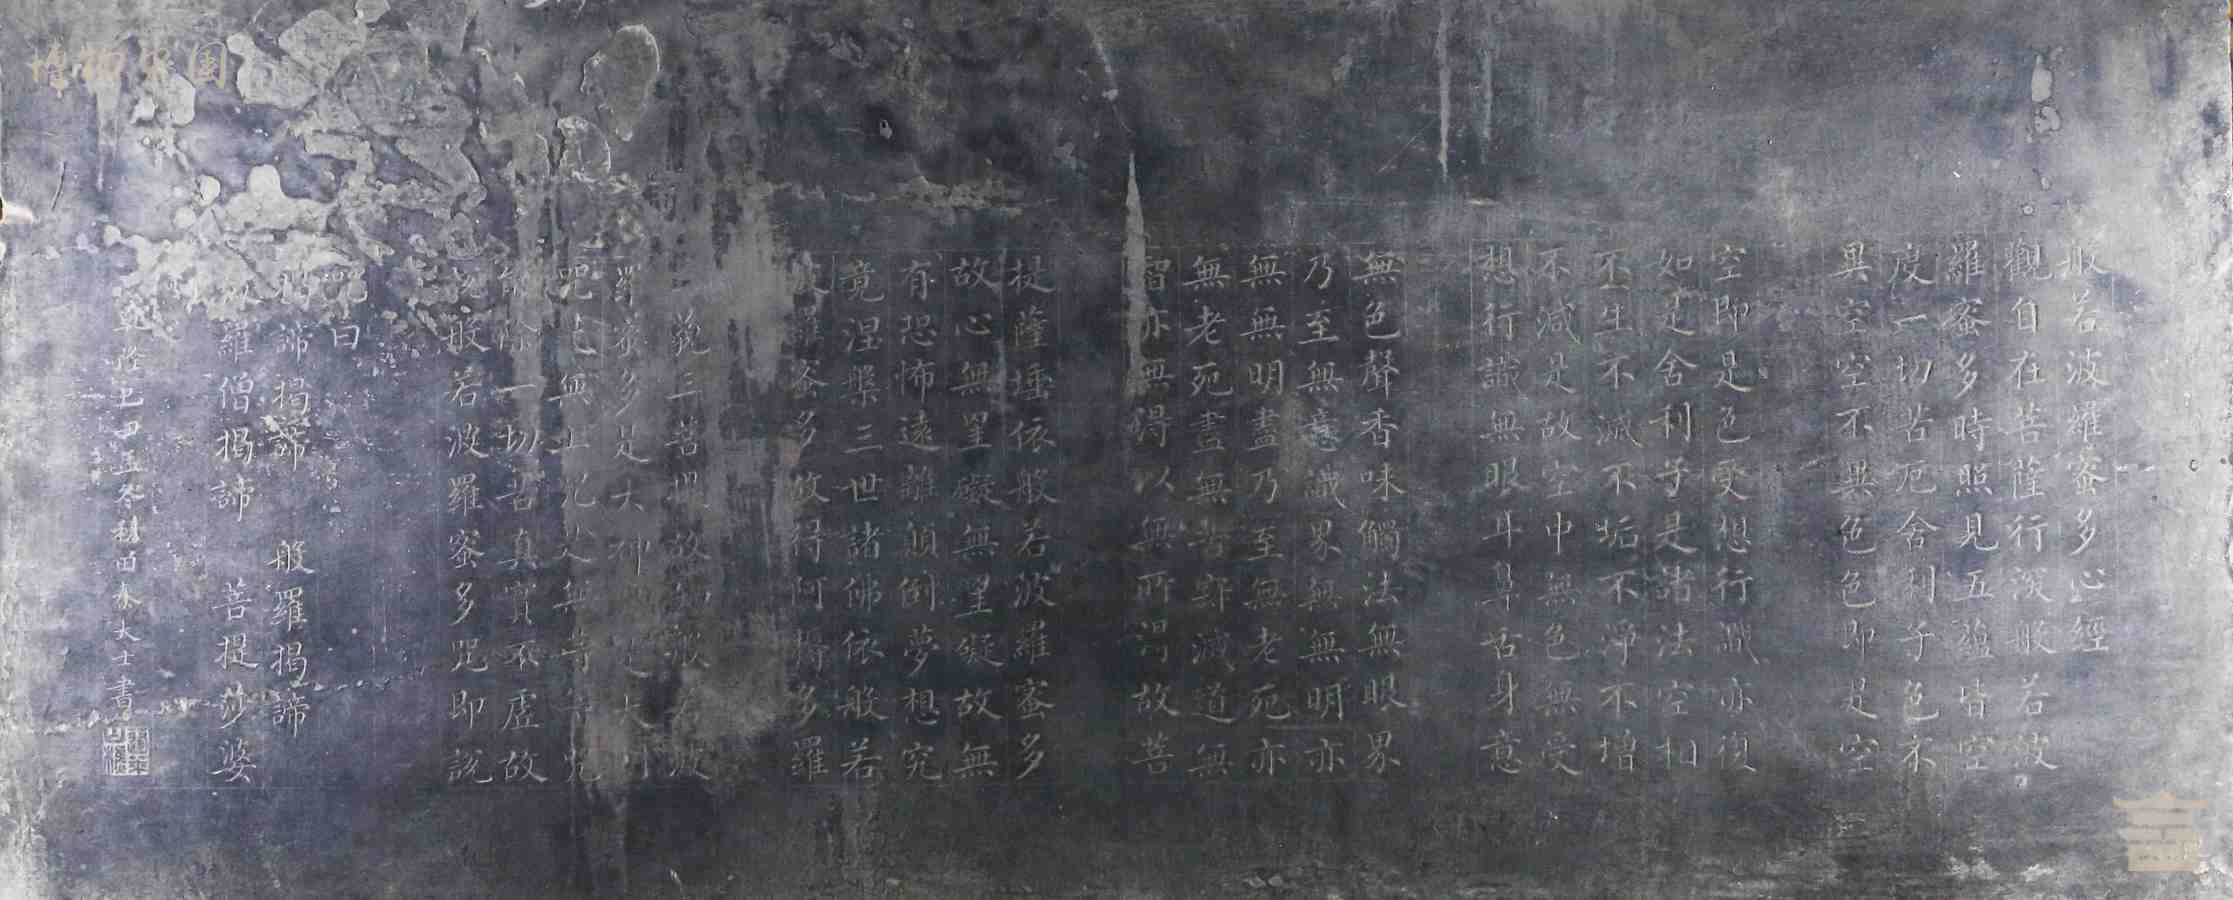 般若波羅蜜多心經
觀自在菩薩行深般若波
羅蜜多時照見五蘊皆空
度一切苦厄舍利子色不
異空空不異色色即是空
空即是色受想行識亦復
如是舍利子是諸法空相
不生不滅不垢不淨不增
不減是故空中無色無受
想行識無眼耳鼻舌身意
無色聲香味觸法無眼界
乃至無意識界無無明亦
無無明盡乃至無老死亦
無老死盡無苦寂滅道無
智亦無得以無所得故菩
提薩埵依般若波羅蜜多
故心無罣礙無罣礙故無
有恐怖遠離顛倒夢想究
竟涅槃三世諸佛依般若
波羅蜜多故得阿耨多羅
三藐三菩提故知般若波
羅蜜多是大神咒是大明
咒是無上咒是無等等咒
能除一切苦真實不虛故
說般若波羅蜜多咒即說
咒曰
揭諦揭諦 般羅揭諦
般羅僧揭諦 菩提莎婆
士書